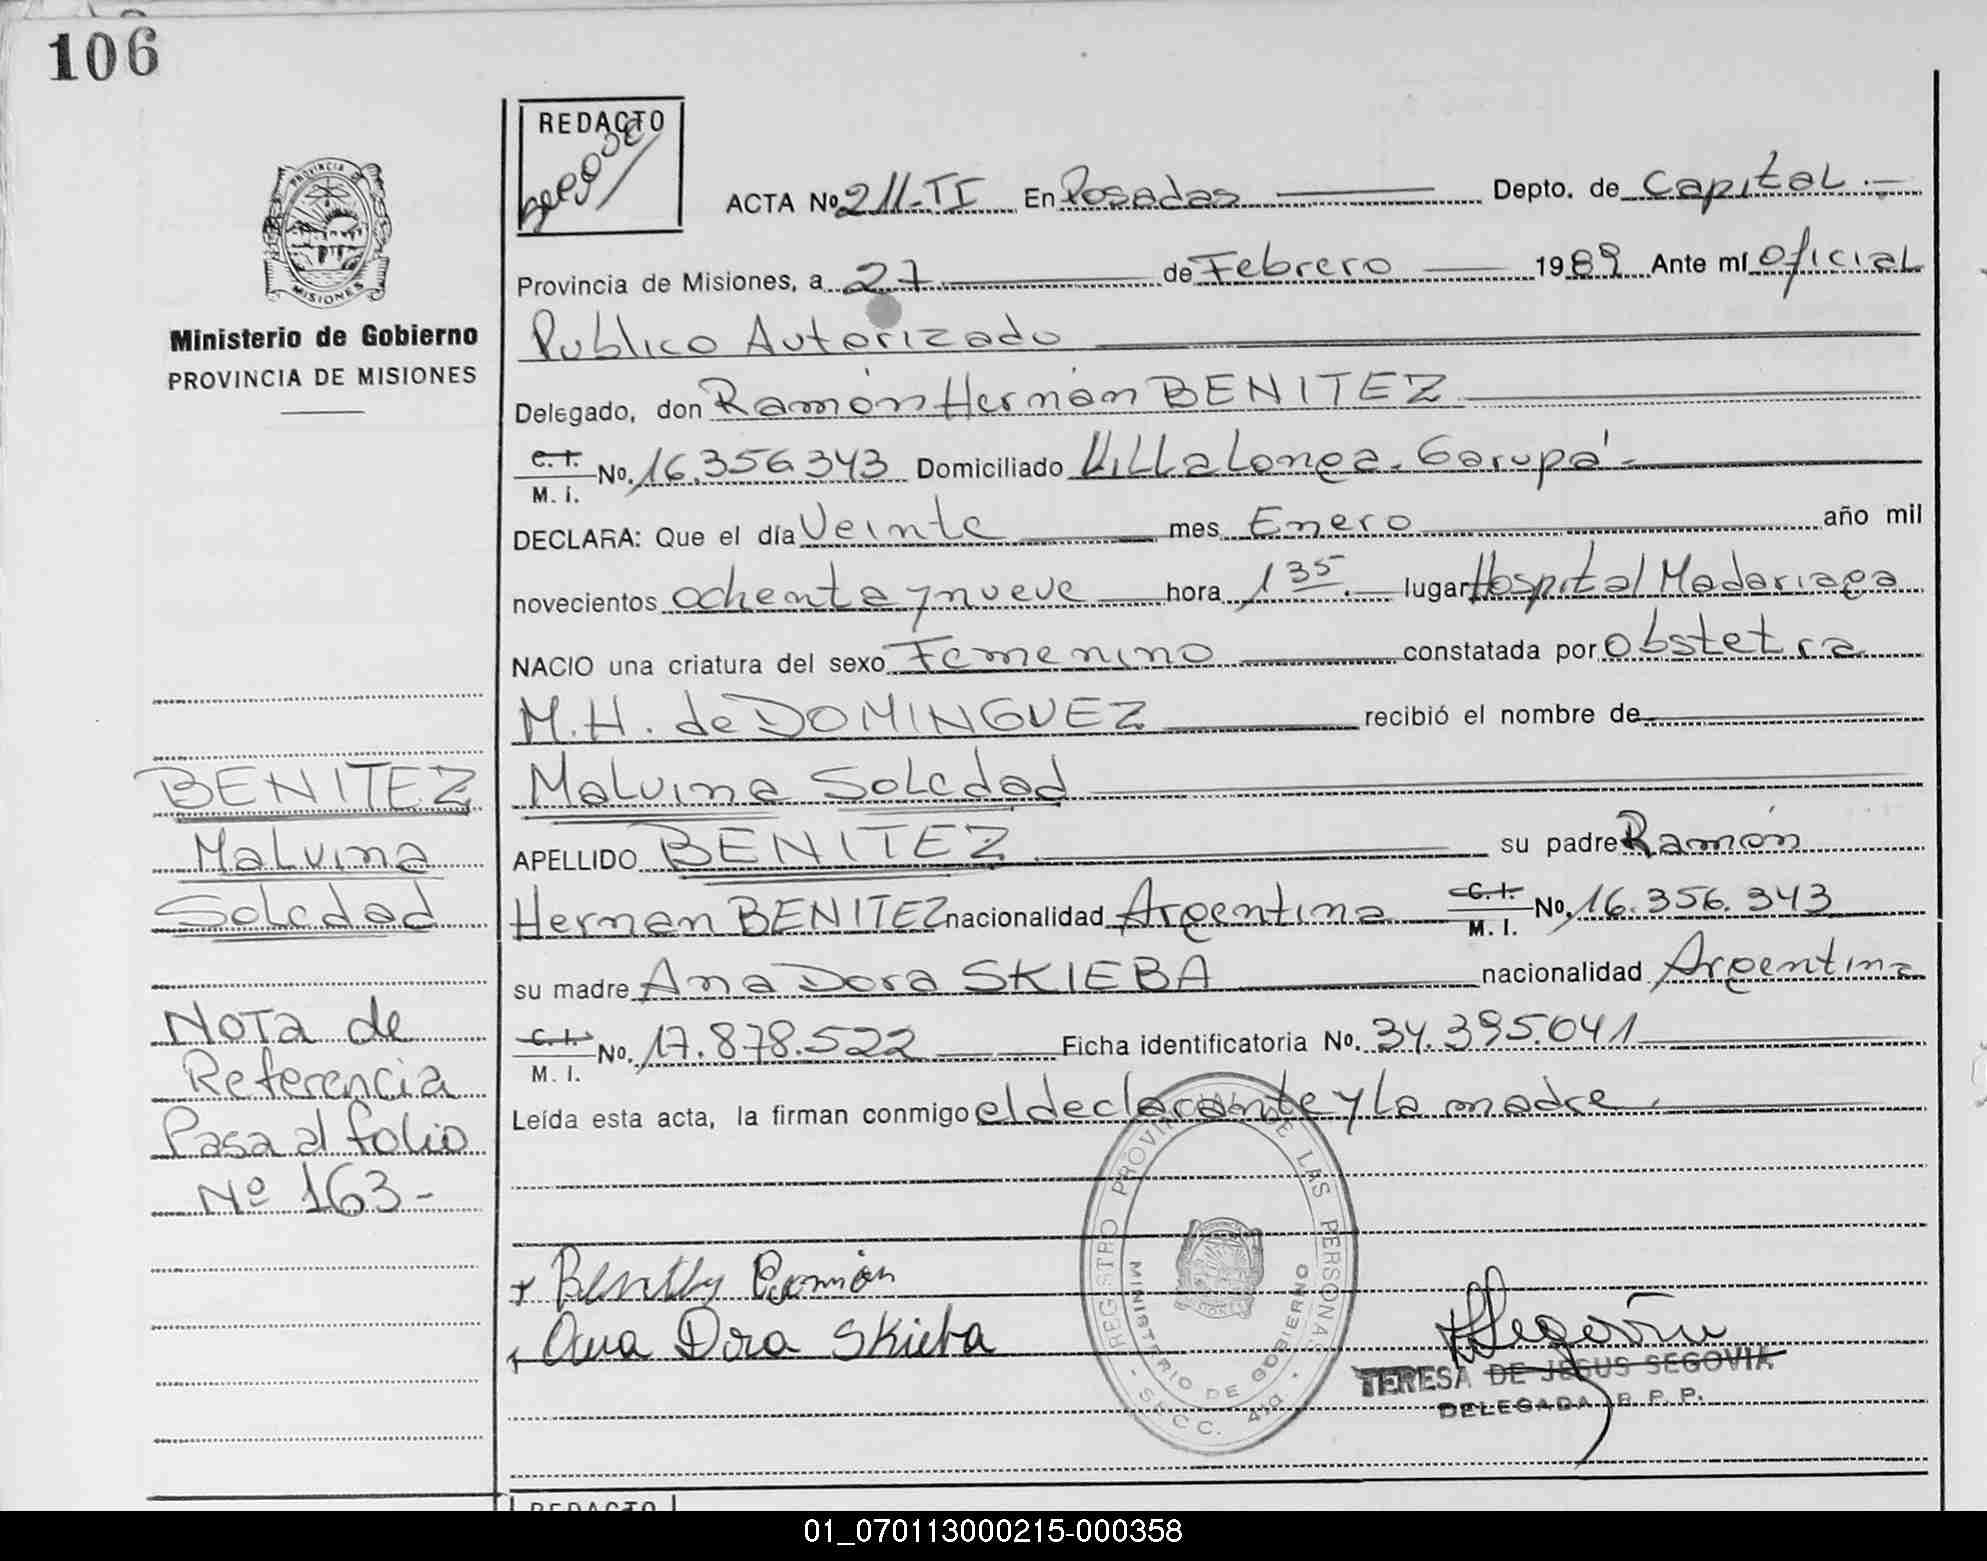 106
PROVINCIA DE
MISIONES
Ministerio de Gobierno
PROVINCIA DE MISIONES
REDACTO
ACTA No 211-TI En Posadas Depto. de Capital.-
Provincia de Misiones, a 27 de Febrero 1989 Ante mí Oficial
Publico Autorizado
Delegado, don Ramón Hernán BENITEZ
C. I. M. I. No. 16.356.343 Domiciliado Villalonga. Garupá-
DECLARA: Que el día Veinte mes Enero año mil
novecientos ochenta y nueve hora 1 35. lugar Hospital Madariaga
NACIO una criatura del sexo Femenino constatada por Obstetra
M.H. de DOMINGUEZ recibió el nombre de
Malvina Soledad
APELLIDO BENITEZ su padre Ramón
Hernan BENITEZ nacionalidad Argentina C. I. M. I. No. 16.356.343
su madre Ana Dora SKIEBA nacionalidad Argentina
C. I. M. I. No. 17.878.522 Ficha identificatoria No. 34.395.041
Leída esta acta, la firman conmigo el declarante y la madre.
BENITEZ
Malvina
Soledad
Nota de
Referencia
Pasa al folio
Nº 163-
Ramón
Ana Dora Skieba
REGISTRO PROVINCIAL DE LAS PERSONAS
MINISTERIO DE GOBIERNO
Segovia
TERESA DE JESUS SEGOVIA
DELEGADA R. P. P.
REDACTO
01_070113000215-000358